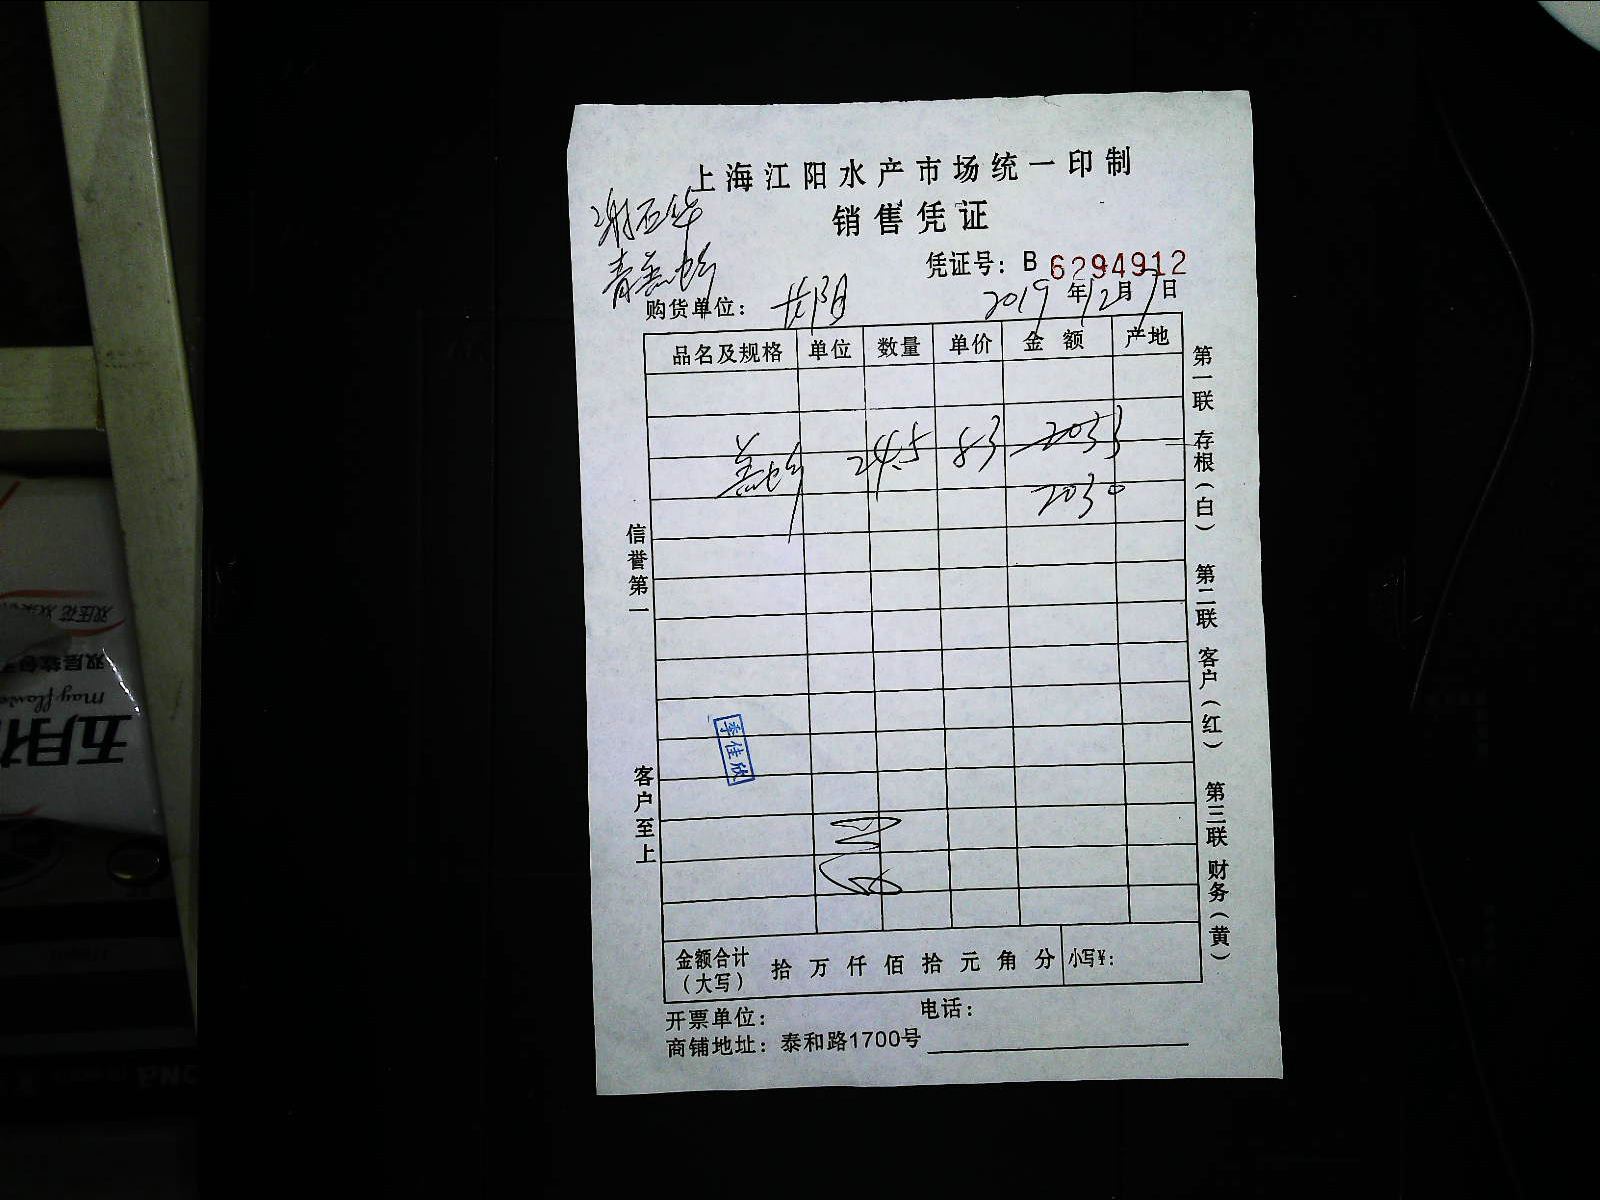 上海江阳水产市场统一印制
销售凭证
谢石华
凭证号：B 6294912
青盖蛤
购货单位：
2019年12月7日
品名及规格 单位 数量 单价 金额 产地
24.5 83 2033
2030
信誉第一
客户至上
第一联 存根（白） 第二联 客户（红） 第三联 财务（黄）
季佳欣
金额合计（大写） 拾 万 仟 佰 拾 元 角 分 小写¥：
开票单位： 电话：
商铺地址：泰和路1700号
双层软包
mayflower
五月花